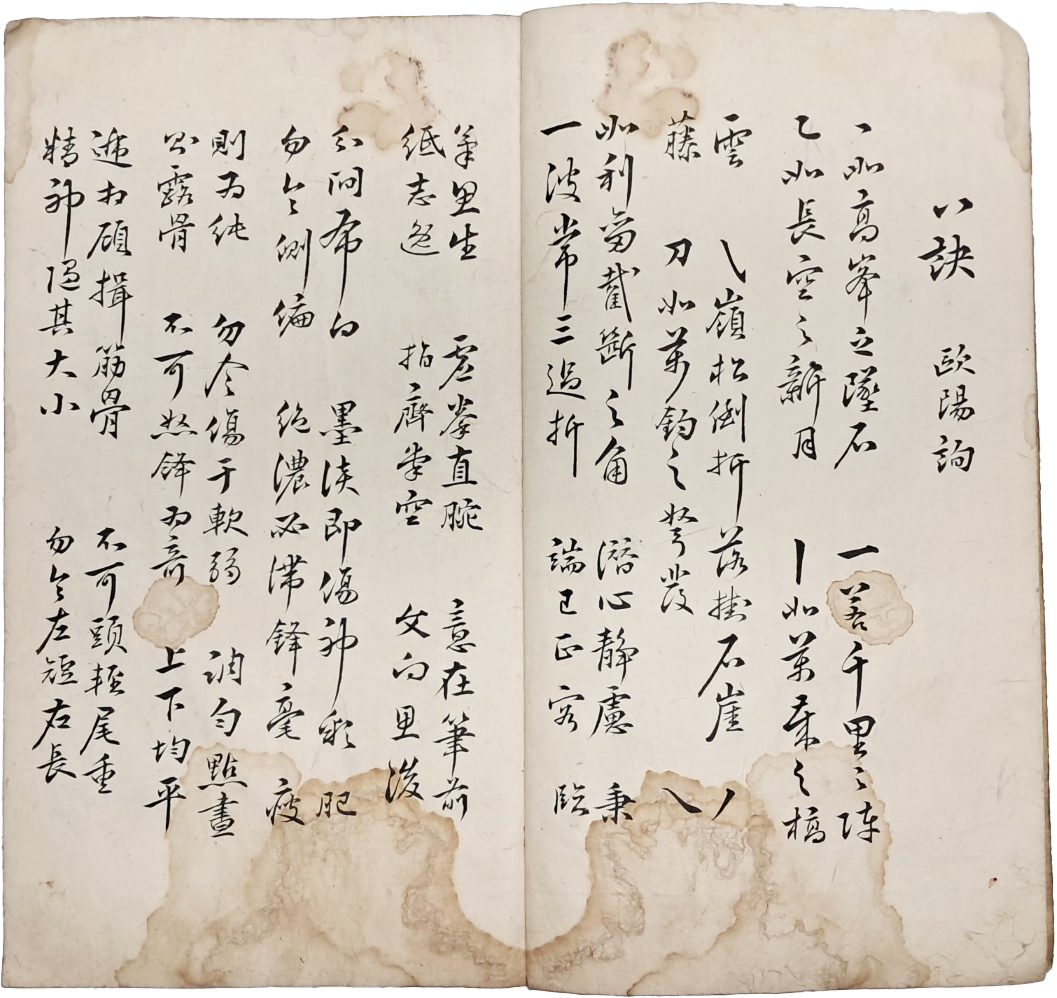 八訣 歐陽詢
丶如高峯之墜石 一若千里之陣
乙如長空之新月 丨如萬歲之槁
雲 乀嶺松倒折落掛石崖 丿
藤 刀如萬鈞之弩發 乀
如利當截斷之角 潛心靜慮 秉
一波常三過折 端己正容 臨
筆思生 虛拳直腕 意在筆前
紙志逸 指齊掌空 文向思後
分間布白 墨淡即傷神彩 肥
勿令側偏 絕濃必滯鋒毫 瘦
則為純 勿令傷于軟弱 調勻點畫
則露骨 不可怒鋒為奇 上下均平
遞相顧揖筋骨 不可頭輕尾重
精神隨其大小 勿令左短右長